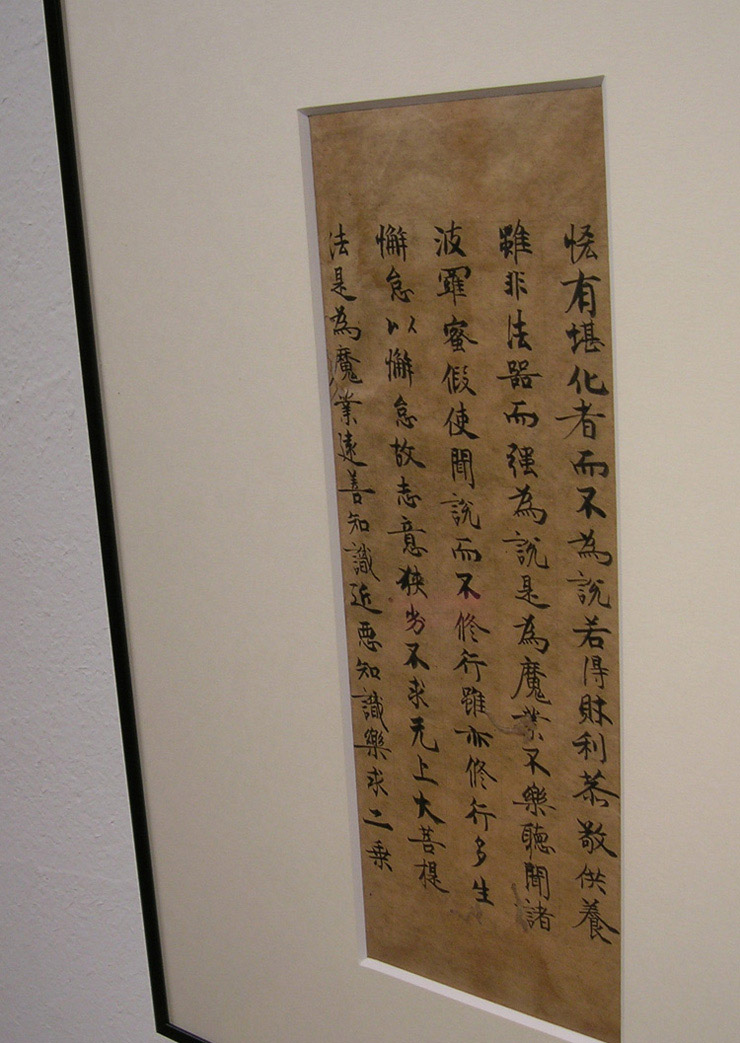 恡有堪化者而不為說若得財利恭敬供養
雖非法器而强為說是為魔業不樂聽聞諸
波羅蜜假使聞說而不修行雖亦修行多生
懈怠以懈怠故志意狹劣不求无上大菩提
法是為魔業遠善知識近悪知識樂求二乗